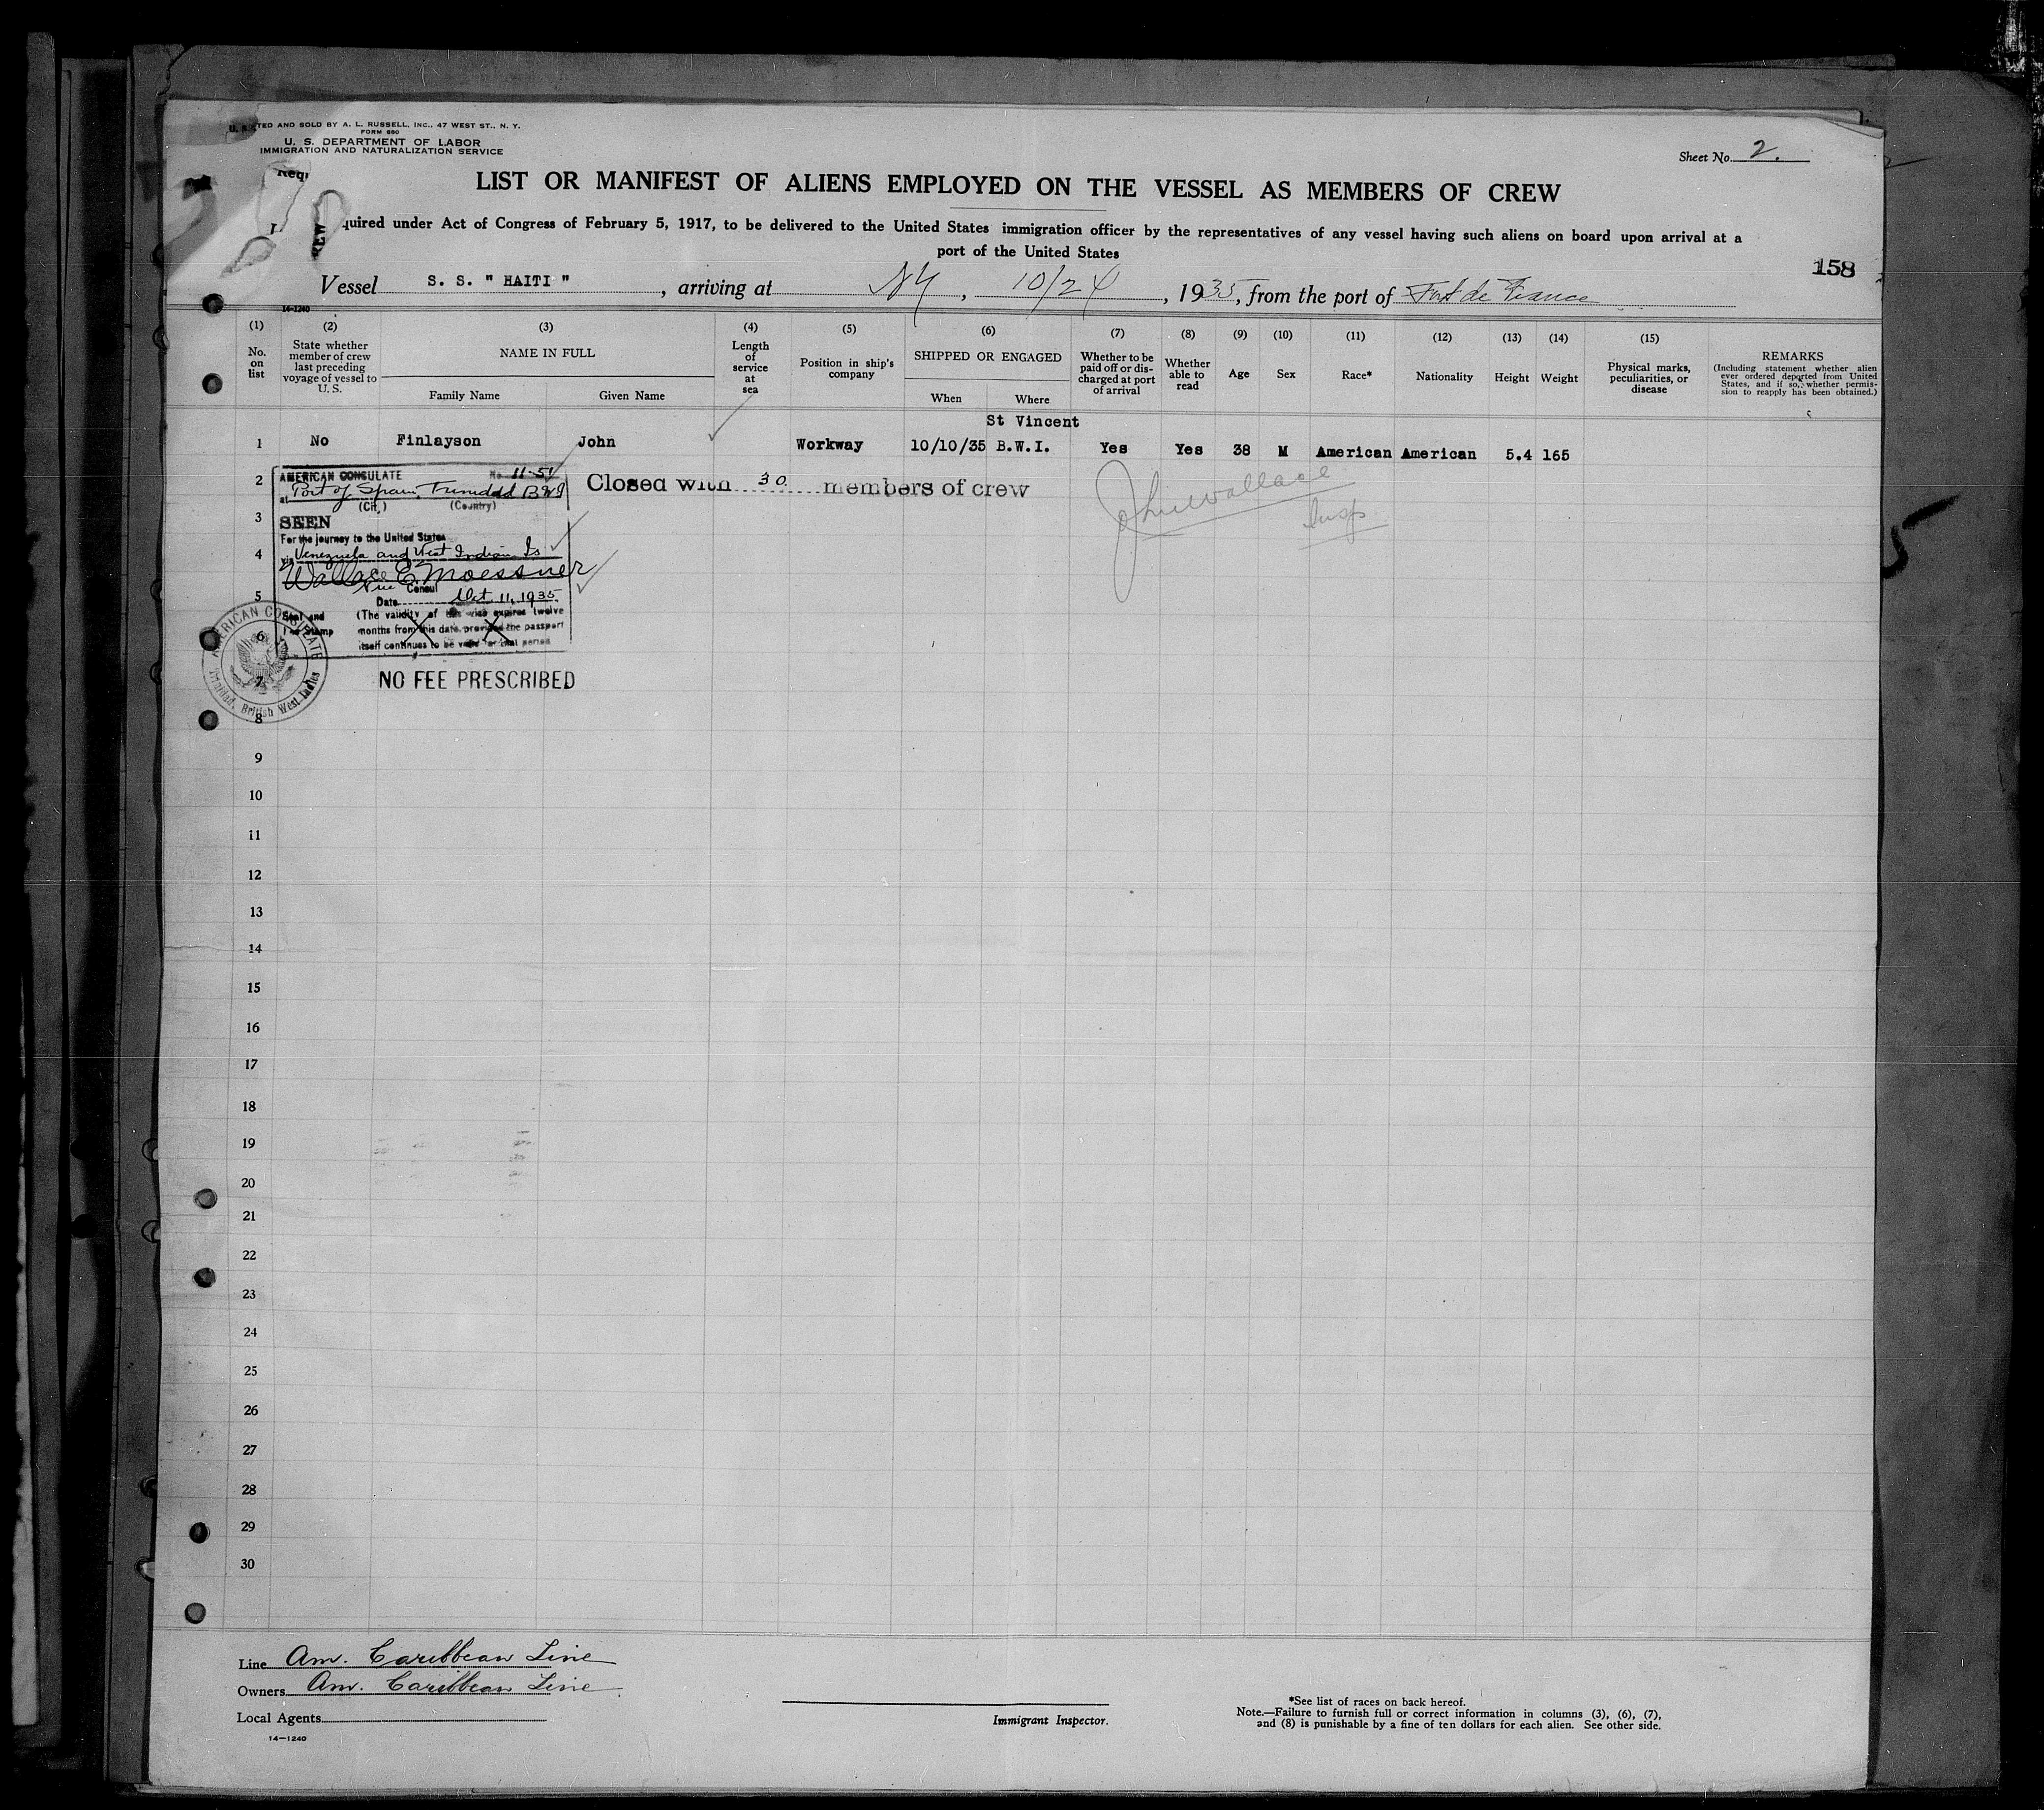 TED AND SOLD BY A. L. RUSSELL, INC., 47 WEST ST., N. Y.
FORM 680
U. S. DEPARTMENT OF LABOR
IMMIGRATION AND NATURALIZATION SERVICE
Sheet No. 2.
LIST OR MANIFEST OF ALIENS EMPLOYED ON THE VESSEL AS MEMBERS OF CREW
quired under Act of Congress of February 5, 1917, to be delivered to the United States immigration officer by the representatives of any vessel having such aliens on board upon arrival at a
port of the United States
158
Vessel S. S. " HAITI " , arriving at NY , 10/24 , 1935, from the port of Fort de France
14-1240
(1) (2) (3) (4) (5) (6) (7) (8) (9) (10) (11) (12) (13) (14) (15)
No. on list
State whether member of crew last preceding voyage of vessel to U. S.
NAME IN FULL
Family Name Given Name
Length of service at sea
Position in ship's company
SHIPPED OR ENGAGED
When Where
Whether to be paid off or discharged at port of arrival
Whether able to read
Age
Sex
Race*
Nationality
Height
Weight
Physical marks, peculiarities, or disease
REMARKS
(Including statement whether alien ever ordered deported from United States, and if so, whether permission to reapply has been obtained.)
St Vincent
1 No Finlayson John Workway 10/10/35 B.W.I. Yes Yes 38 M American American 5.4 165
2
AMERICAN CONSULATE No. 11-51
at Port of Spain, Trinidad B.W.I
(City) (Country)
Closed with 30 members of crew
John Wallace
Insp
3
SEEN
For the journey to the United States
4
via Venezuela and West Indian Is
Wallace E. Moessner
Vice Consul
5
Date Oct 11, 1935
Seal and
Fee Stamp
(The validity of this visa expires twelve
months from this date provided the passport
itself continues to be valid for that period
6
7
AMERICAN CONSULATE
Trinidad, British West Indies
NO FEE PRESCRIBED
8
9
10
11
12
13
14
15
16
17
18
19
20
21
22
23
24
25
26
27
28
29
30
Line Am. Caribbean Line
Owners Am. Caribbean Line
Local Agents
14-1240
Immigrant Inspector.
*See list of races on back hereof.
Note.—Failure to furnish full or correct information in columns (3), (6), (7),
and (8) is punishable by a fine of ten dollars for each alien. See other side.